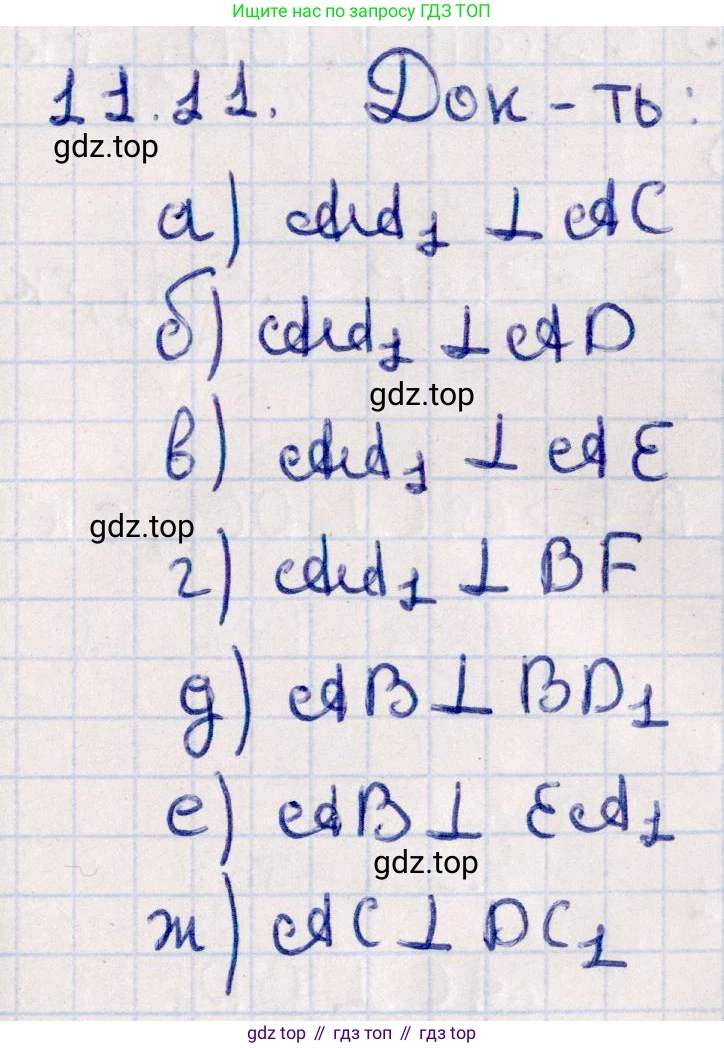 Ищите нас по запросу ГДЗ ТОП
11.11. Док-ть:
gdz.top
а) AA₁ ⊥ AC
б) AA₁ ⊥ AD
gdz.top
в) AA₁ ⊥ AE
gdz.top
г) AA₁ ⊥ BF
д) AB ⊥ BD₁
е) AB ⊥ EA₁
gdz.top
ж) AC ⊥ DC₁
gdz top // гдз топ // gdz top